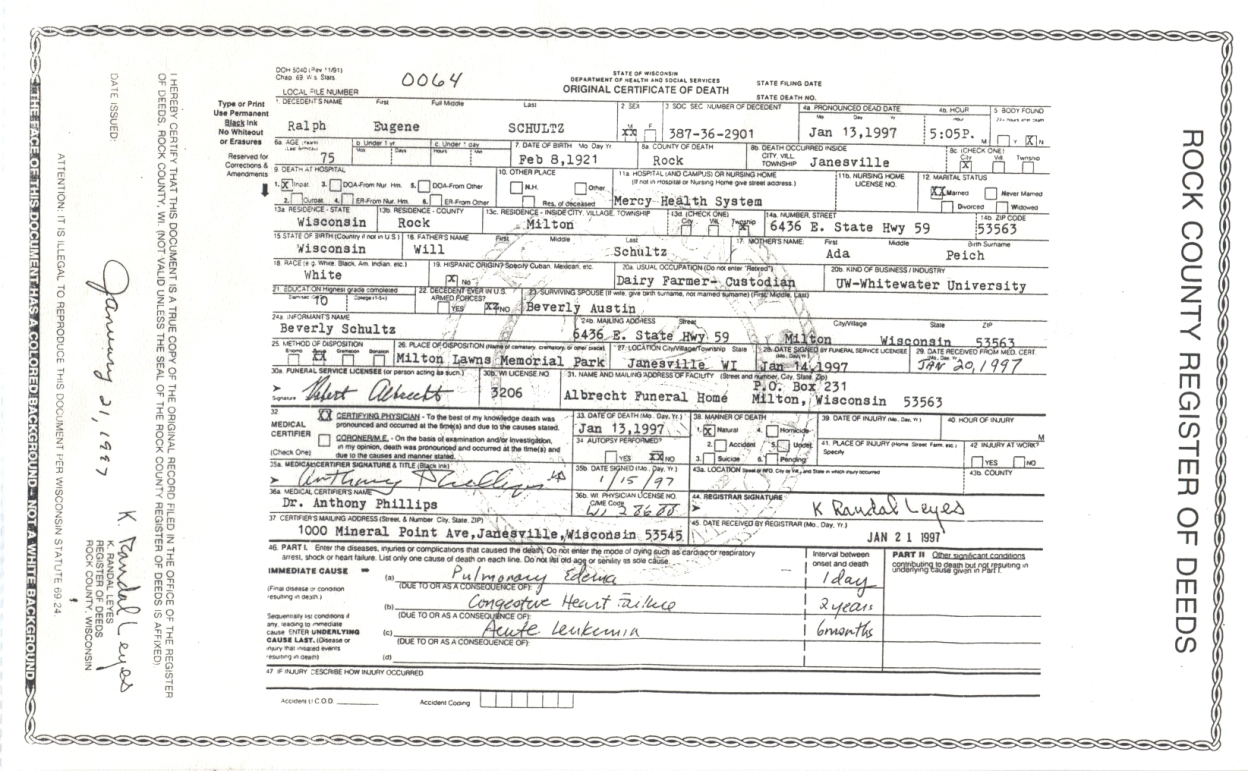 DOH 5040 (Rev 11/91)
Chap 69 Wis Stats
0064
STATE OF WISCONSIN
DEPARTMENT OF HEALTH AND SOCIAL SERVICES
ORIGINAL CERTIFICATE OF DEATH
STATE FILING DATE
STATE DEATH NO.
LOCAL FILE NUMBER
Type or Print
Use Permanent
Black Ink
No Whiteout
or Erasures
Reserved for
Corrections &
Amendments
1. DECEDENT'S NAME First Full Middle Last 2 SEX 3 SOC SEC NUMBER OF DECEDENT 4a PRONOUNCED DEAD DATE 4b. HOUR 5 BODY FOUND
Ralph Eugene SCHULTZ XX M F 387-36-2901 Jan 13,1997 5:05P. M Y X N
6a AGE 75 b Under 1 yr. c. Under 1 day 7. DATE OF BIRTH Mo. Day Yr. 8a COUNTY OF DEATH 8b. DEATH OCCURRED INSIDE CITY, VILL TOWNSHIP 8c (CHECK ONE)
Feb 8,1921 Rock Janesville City X Vill Twnshp
9 DEATH AT HOSPITAL 10. OTHER PLACE 11a HOSPITAL (AND CAMPUS) OR NURSING HOME 11b. NURSING HOME LICENSE NO. 12. MARITAL STATUS
(If not in Hospital or Nursing Home give street address.)
1. X Inpat. 3. DOA-From Nur. Hm. 5. DOA-From Other N.H. Other XX Married Never Married
2. Outpat. 4. ER-From Nur. Hm. 6. ER-From Other Res. of deceased Mercy Health System Divorced Widowed
13a RESIDENCE - STATE 13b. RESIDENCE - COUNTY 13c. RESIDENCE - INSIDE CITY, VILLAGE, TOWNSHIP 13d. (CHECK ONE) City Vill Twnshp 14a. NUMBER, STREET 14b. ZIP CODE
Wisconsin Rock Milton 6436 E. State Hwy 59 53563
15 STATE OF BIRTH (Country if not in U.S.) 16. FATHER'S NAME First Middle Last 17. MOTHER'S NAME: First Middle Birth Surname
Wisconsin Will Schultz Ada Peich
18. RACE (e.g. White, Black, Am. Indian, etc.) 19. HISPANIC ORIGIN? Specify Cuban, Mexican, etc. 20a. USUAL OCCUPATION (Do not enter "Retired") 20b. KIND OF BUSINESS / INDUSTRY
White X No Dairy Farmer- Custodian UW-Whitewater University
21. EDUCATION Highest grade completed 22. DECEDENT EVER IN U.S. ARMED FORCES? 23. SURVIVING SPOUSE (If wife, give birth surname, not married surname) (First, Middle, Last)
10 YES XX NO Beverly Austin
24a INFORMANT'S NAME 24b. MAILING ADDRESS Street City/Village State ZIP
Beverly Schultz 6436 E. State Hwy 59 Milton Wisconsin 53563
25. METHOD OF DISPOSITION 26. PLACE OF DISPOSITION (Name of cemetery, crematory, or other place) 27. LOCATION City/Village/Township State 28. DATE SIGNED BY FUNERAL SERVICE LICENSEE 29. DATE RECEIVED FROM MED. CERT.
XX Cremation Donation Milton Lawns Memorial Park Janesville WI Jan 14,1997 JAN 20, 1997
30a. FUNERAL SERVICE LICENSEE (or person acting as such.) 30b. WI LICENSE NO 31. NAME AND MAILING ADDRESS OF FACILITY (Street and Number, City, State, Zip)
P.O. Box 231
Signature Albrecht 3206 Albrecht Funeral Home Milton, Wisconsin 53563
32 MEDICAL CERTIFIER (Check One)
XX CERTIFYING PHYSICIAN - To the best of my knowledge death was pronounced and occurred at the time(s) and due to the causes stated.
CORONER/M.E. - On the basis of examination and/or investigation, in my opinion, death was pronounced and occurred at the time(s) and due to the causes and manner stated.
33. DATE OF DEATH (Mo., Day, Yr.) 38. MANNER OF DEATH 39. DATE OF INJURY (Mo., Day, Yr.) 40. HOUR OF INJURY
Jan 13,1997 1. X Natural 4. Homicide M
34 AUTOPSY PERFORMED? 2. Accident 5. Undet. 41. PLACE OF INJURY (Home Street Farm, etc.) Specify 42 INJURY AT WORK?
YES XX NO 3. Suicide 6. Pending YES NO
35a. MEDICAL CERTIFIER SIGNATURE & TITLE (Black ink) 35b. DATE SIGNED (Mo., Day, Yr.) 43a. LOCATION Street or RFD, City or Vill., and State in which injury occurred 43b. COUNTY
Anthony Phillips 1/15/97
36a MEDICAL CERTIFIER'S NAME 36b. WI PHYSICIAN LICENSE NO. C/ME Code 44. REGISTRAR SIGNATURE
Dr. Anthony Phillips WI 28688 K Randal Leyes
37 CERTIFIER'S MAILING ADDRESS (Street, & Number City, State, ZIP) 45. DATE RECEIVED BY REGISTRAR (Mo., Day, Yr.)
1000 Mineral Point Ave,Janesville,Wisconsin 53545 JAN 21 1997
46. PART I. Enter the diseases, injuries or complications that caused the death. Do not enter the mode of dying such as cardiac or respiratory arrest, shock or heart failure. List only one cause of death on each line. Do not list old age or senility as sole cause.
Interval between onset and death
PART II Other significant conditions contributing to death but not resulting in underlying cause given in Part I.
IMMEDIATE CAUSE (a) Pulmonary Edema 1 day
(Final disease or condition resulting in death.) (DUE TO OR AS A CONSEQUENCE OF):
(b) Congestive Heart Failure 2 years
Sequentially list conditions if any, leading to immediate cause ENTER UNDERLYING CAUSE LAST. (Disease or injury that initiated events resulting in death)
(DUE TO OR AS A CONSEQUENCE OF):
(c) Acute Leukemia 6 months
(DUE TO OR AS A CONSEQUENCE OF):
(d)
47 IF INJURY DESCRIBE HOW INJURY OCCURRED
Accident Coding
ROCK COUNTY REGISTER OF DEEDS
I HEREBY CERTIFY THAT THIS DOCUMENT IS A TRUE COPY OF THE ORIGINAL RECORD FILED IN THE OFFICE OF THE REGISTER
OF DEEDS, ROCK COUNTY, WI. (NOT VALID UNLESS THE SEAL OF THE ROCK COUNTY REGISTER OF DEEDS IS AFFIXED).
DATE ISSUED:
January 21, 1997
K. Randal Leyes
K. RANDAL LEYES
REGISTER OF DEEDS
ROCK COUNTY, WISCONSIN
ATTENTION: IT IS ILLEGAL TO REPRODUCE THIS DOCUMENT PER WISCONSIN STATUTE 69-24.
THE FACE OF THIS DOCUMENT HAS A COLORED BACKGROUND - NOT A WHITE BACKGROUND